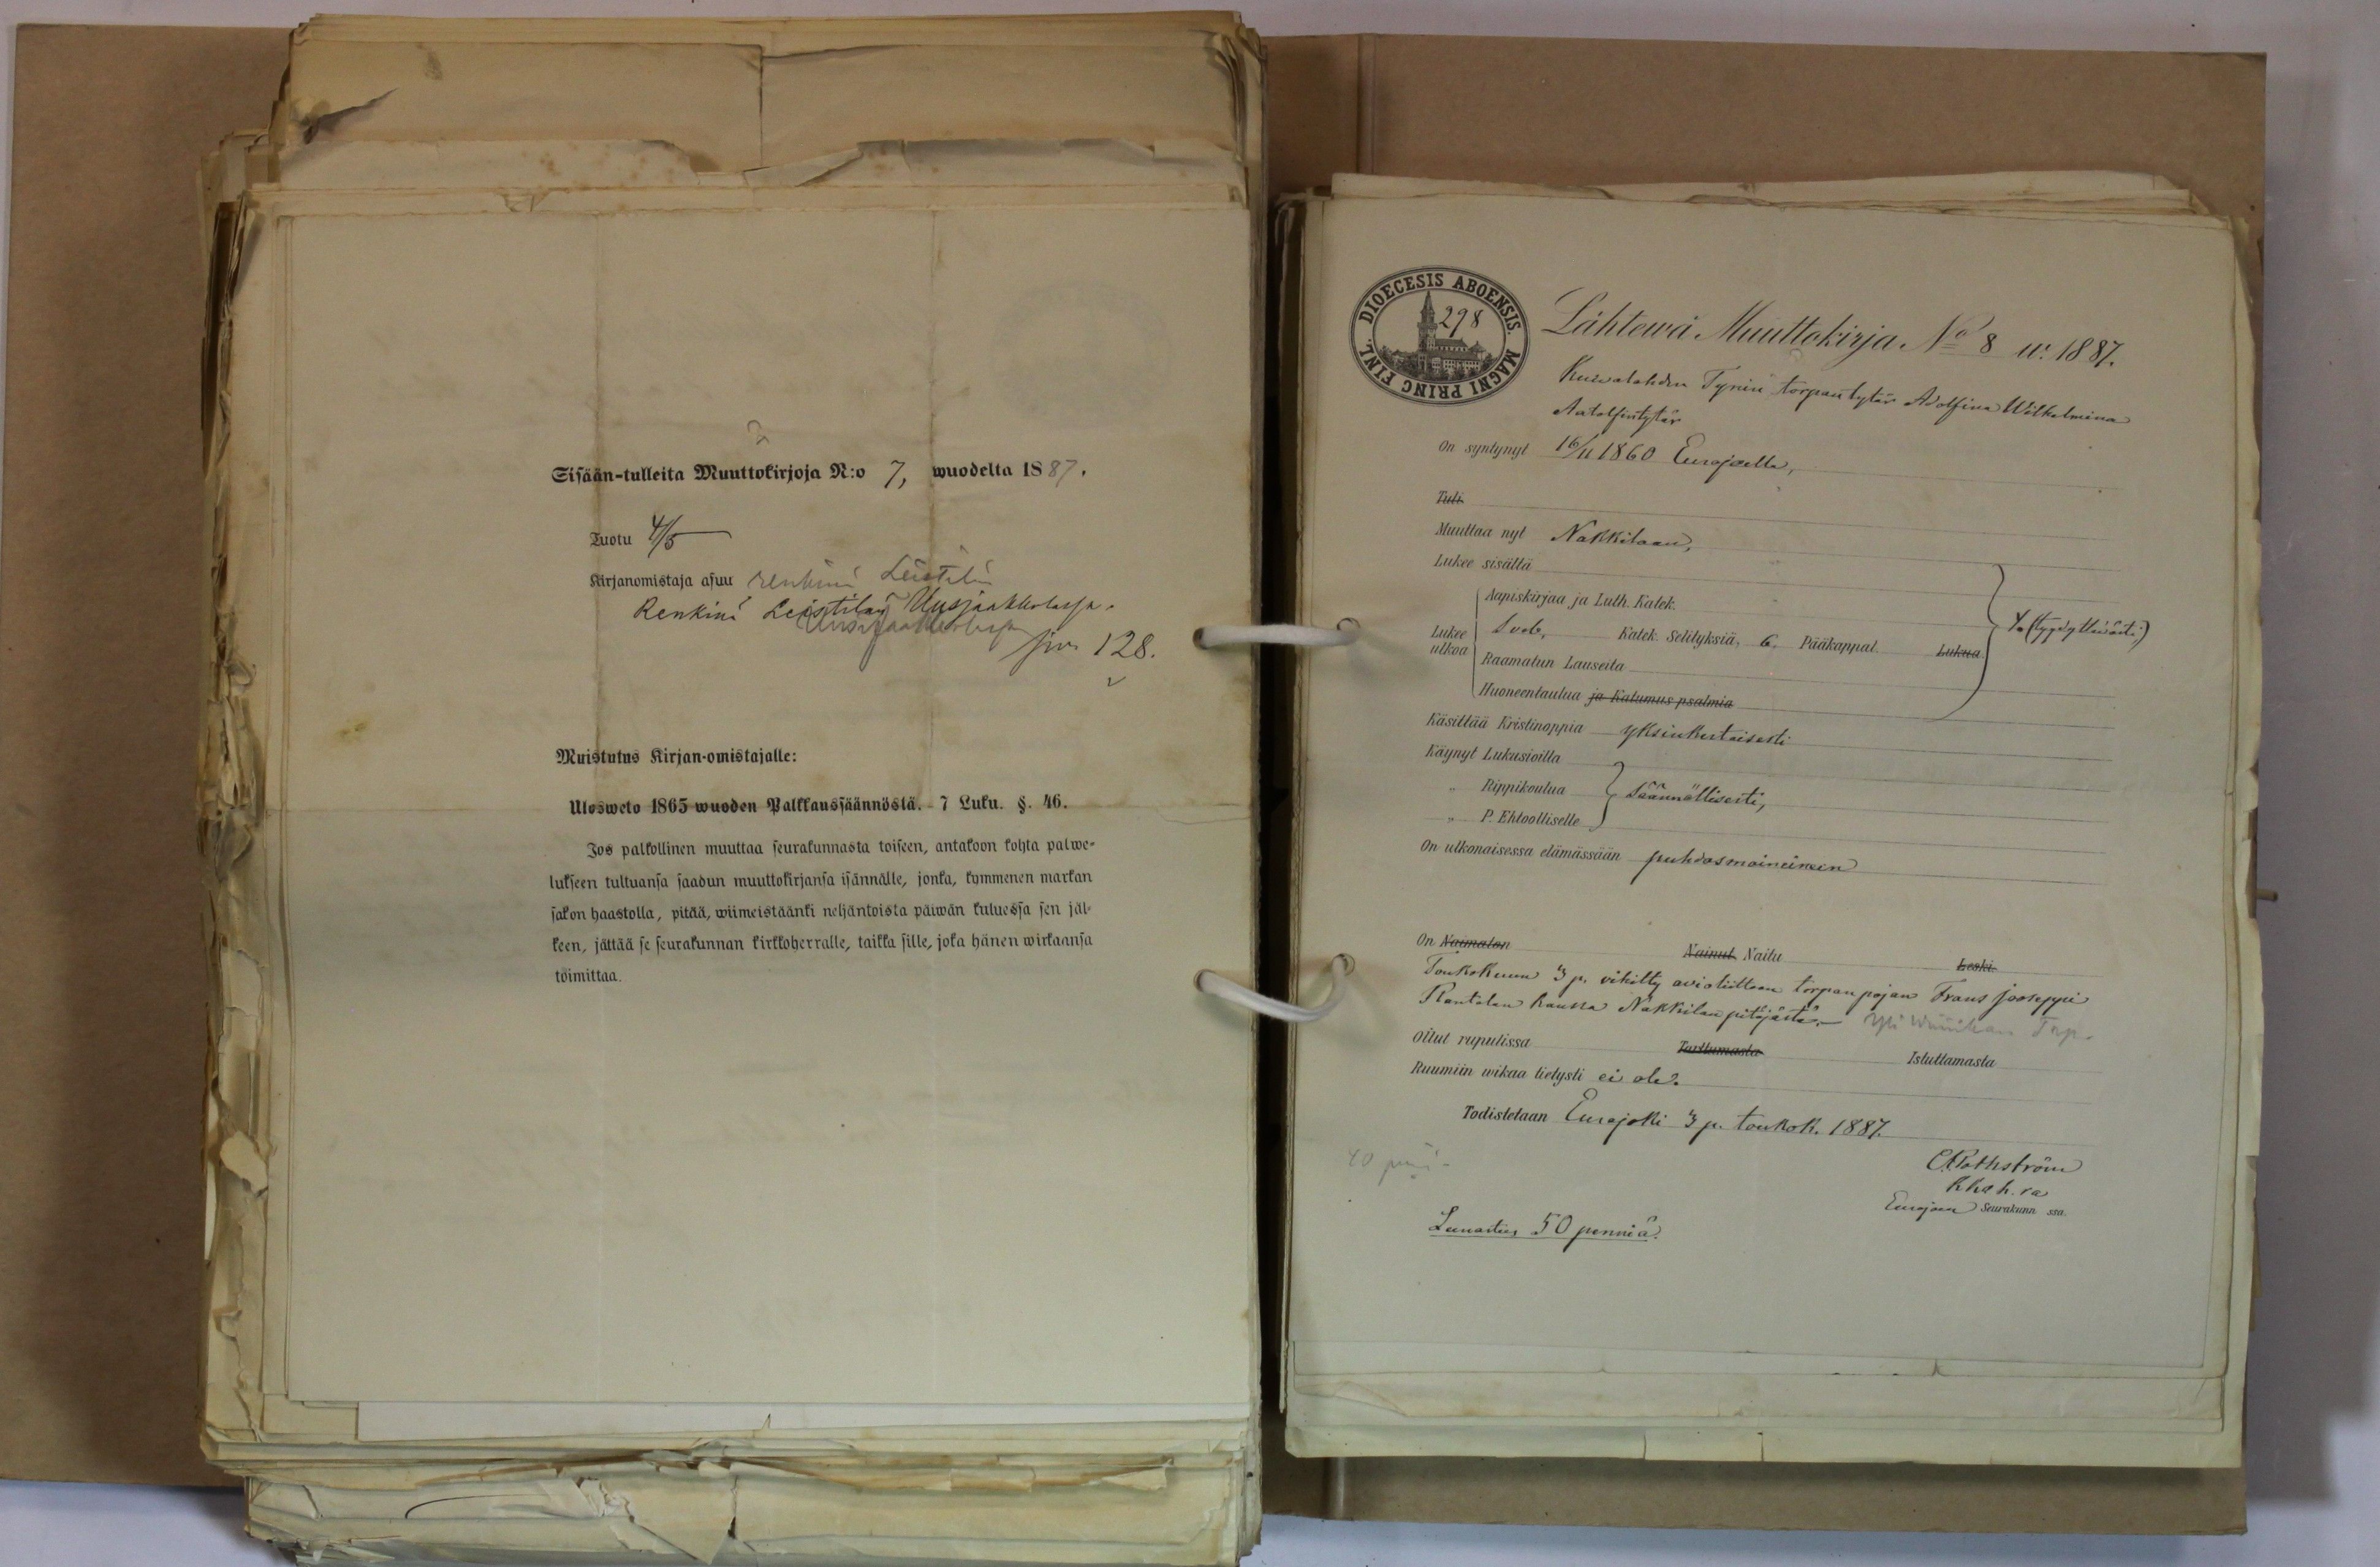 Sisään-tulleita Muuttokirjoja N:o 7, wuodelta 1887.
Tuotu 4/5
Kirjanomistaja asuu renkinä Leistilän
Renkinä Leistilan Uusjaakkolassa.
siv. 128.
Muistutus Kirjan-omistajalle:
Ulosweto 1865 wuoden Palkkaussäännöstä. – 7 Luku. §. 46.
Jos palkollinen muuttaa seurakunnasta toiseen, antakoon kohta palwe-
lukseen tultuansa saadun muuttokirjansa isännälle, jonka, kymmenen markan
sakon haastolla, pitää, wiimeistäänki neljäntoista päiwän kuluessa sen jäl-
keen, jättää se seurakunnan kirkkoherralle, taikka sille, joka hänen wirkaansa
toimittaa.
DIOECESIS ABOENSIS. MAGNI PRINC FINL.
298
Lähtewä Muuttokirja No 8 w. 1887.
Kuivalahden Tynin torpantytär Adolfina Wilhelmina
Aatolfintytär
On syntynyt 16/11 1860 Eurajoella,
Tuli
Muuttaa nyt Nakkilaan,
Lukee sisältä
Aapiskirjaa ja Luth. Katek.
Lukee ulkoa Sveb. Katek. Selityksiä, 6. Pääkappal. Lukua
(tyydyttäwästi)
Raamatun Lauseita
Huoneentaulua ja Katumus psalmia
Käsittää Kristinoppia yksinkertaisesti
Käynyt Lukusioilla
„ Rippikoulua Säännöllisesti,
„ P. Ehtoolliselle
On ulkonaisessa elämässään puhdasmaineinen
On Naimaton Nainut Naitu Leski
Toukokuun 3 p. vihitty avioliittoon torpanpojan Frans Jooseppi
Rantalan kanssa Nakkilan pitäjästä.
Ollut rupulissa Tarttumasta Istuttamasta
Ruumiin wikaa tietysti ei ole.
Todistetaan Eurajoki 3 p. toukok. 1887.
40 penniä
Eurajoen Seurakunn ssa.
Lunastus 50 penniä.